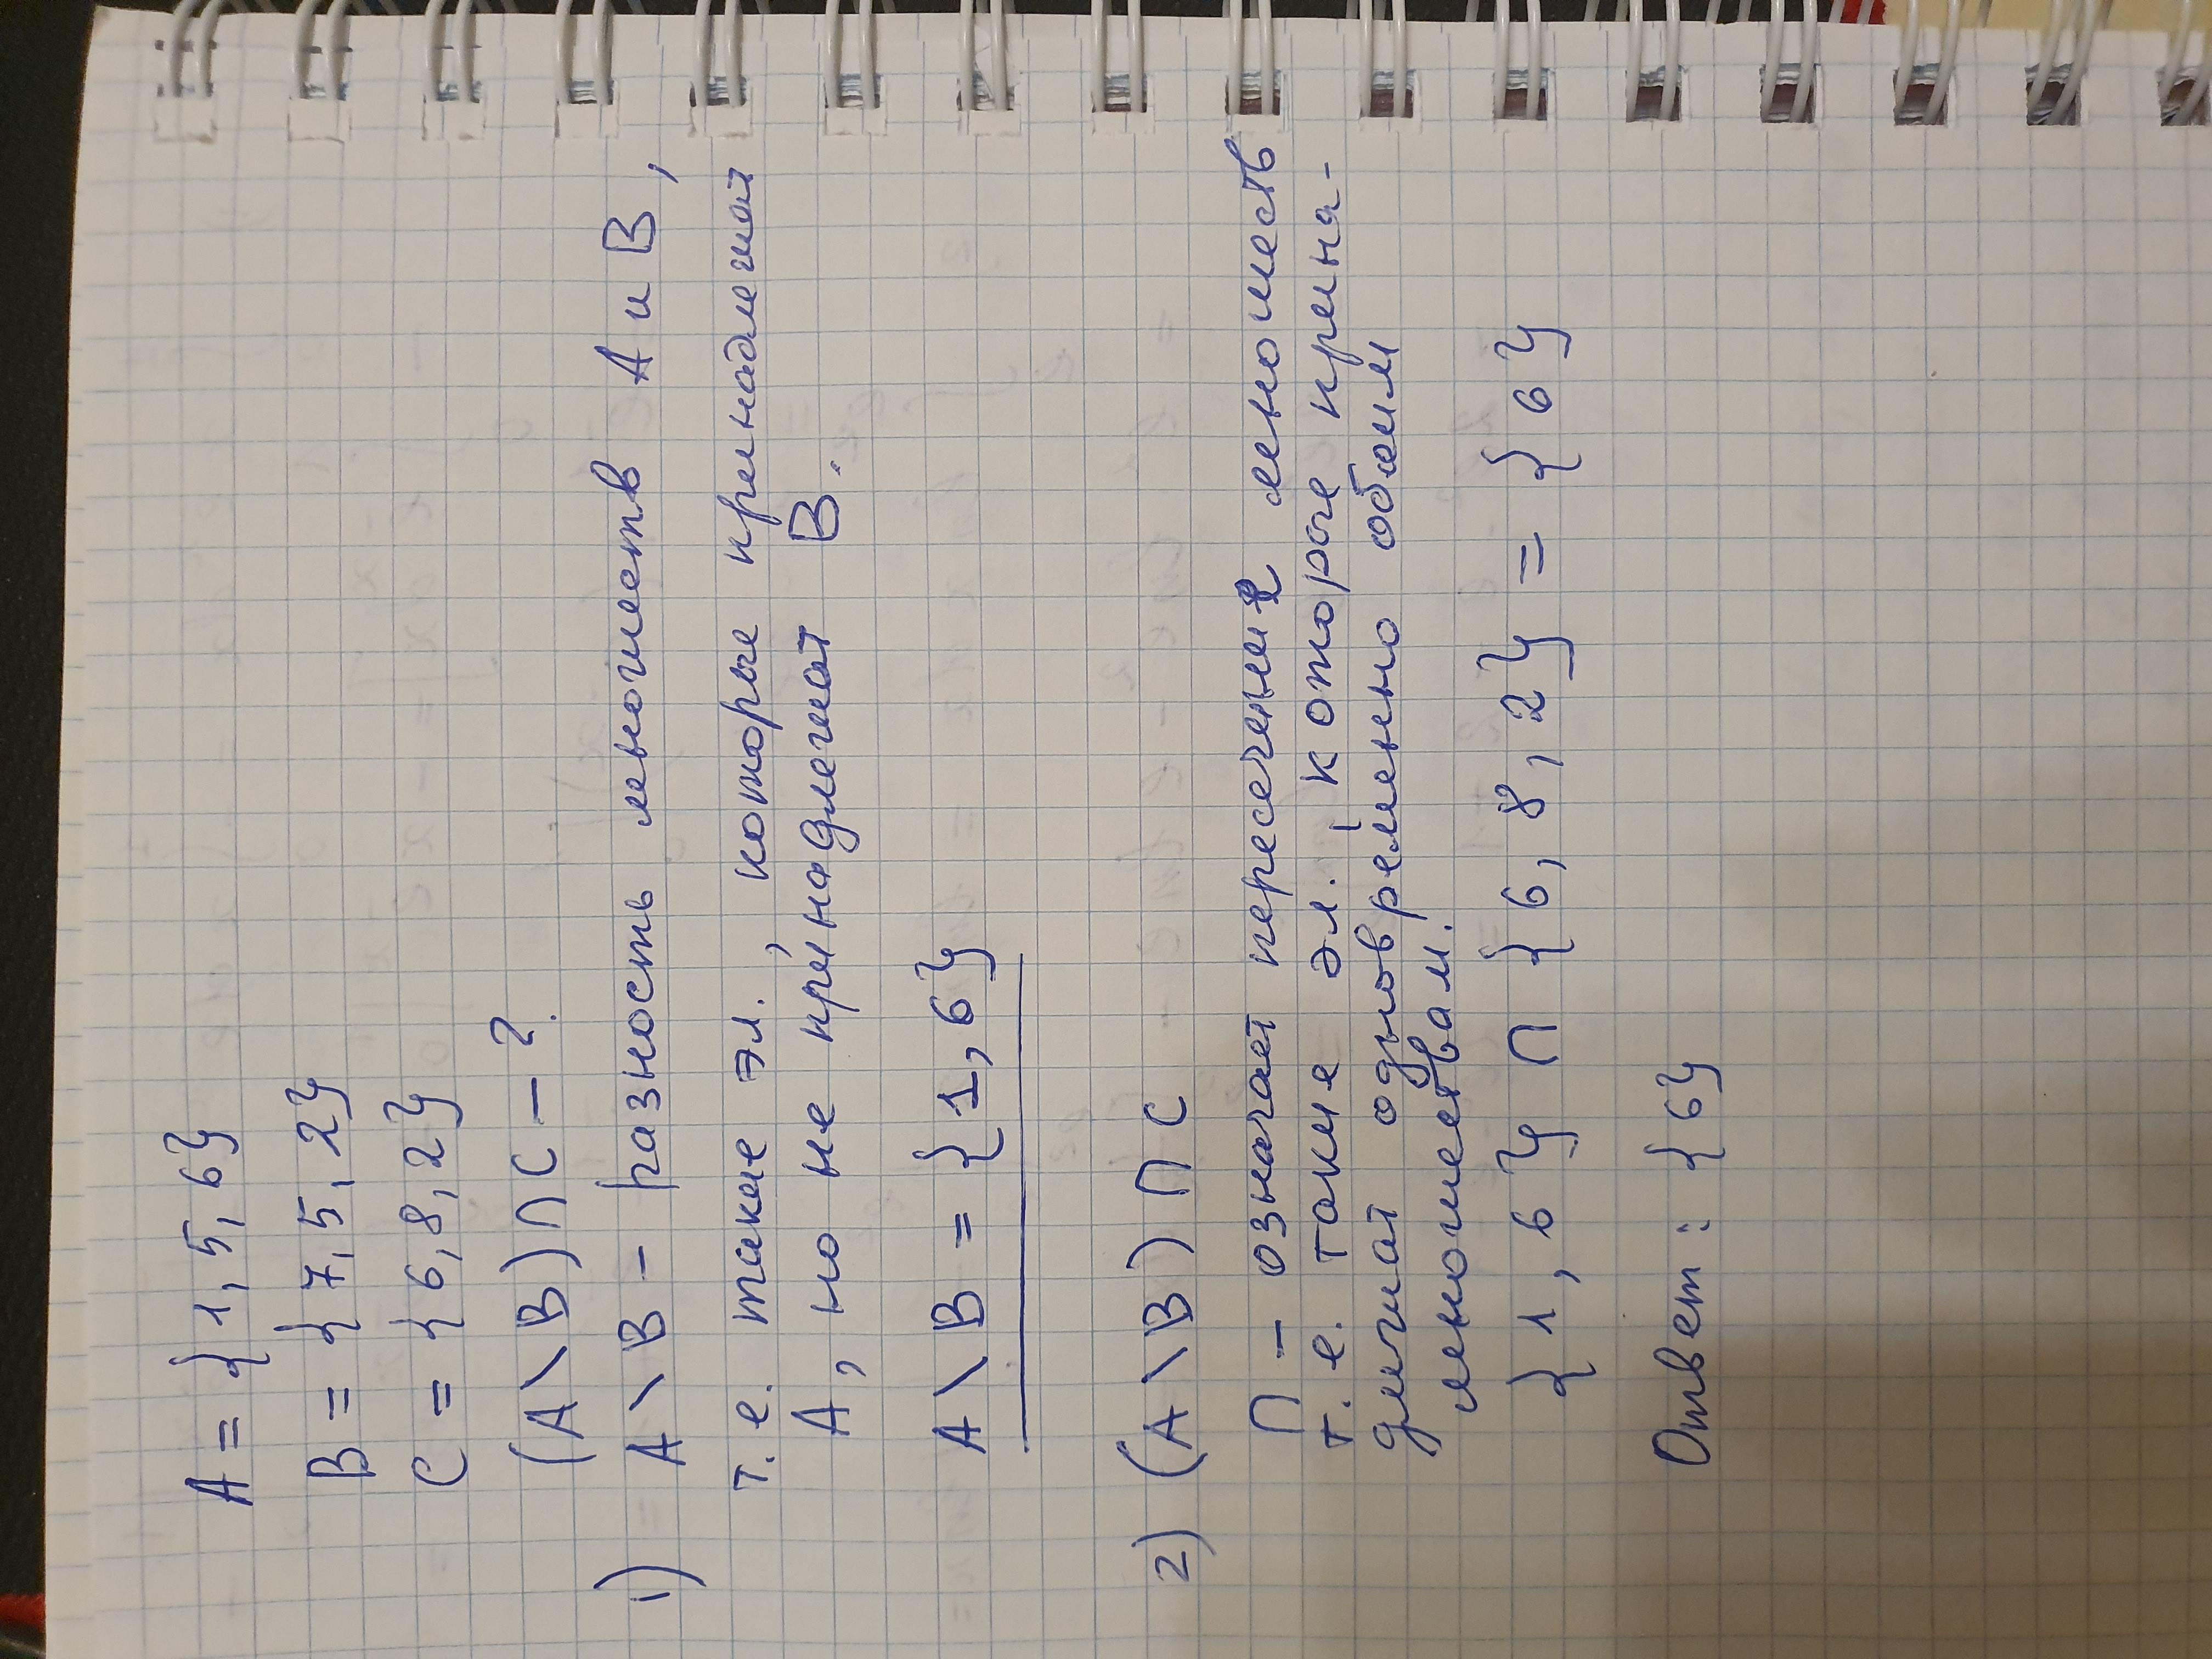 A = {1, 5, 6}
B = {7, 5, 2}
C = {6, 8, 2}
(A \ B) ∩ C - ?
1) A \ B - разность множеств A и B,
т.е. такие эл., которые принадлежат
A, но не принадлежат B.
A \ B = {1, 6}
2) (A \ B) ∩ C
∩ - означает пересечение множеств
т.е. такие эл. которые прина-
длежат одновременно обоим
множествам.
{1, 6} ∩ {6, 8, 2} = {6}
Ответ: {6}